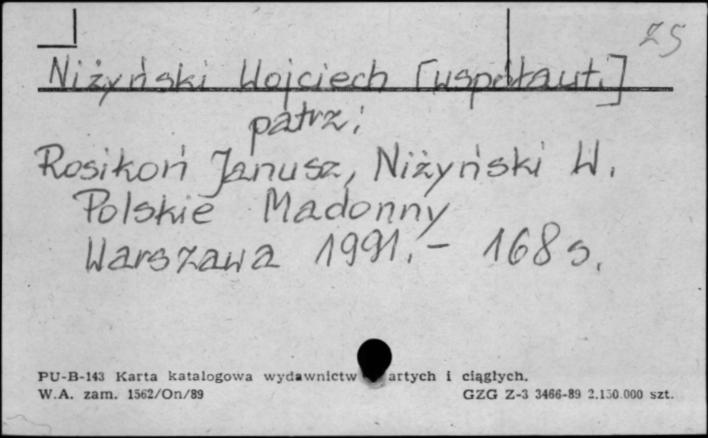 25
Niżyński Wojciech [współaut.]
patrz:
Rosikoń Janusz, Niżyński W.
Polskie Madonny
Warszawa 1991. - 168 s.
PU-B-143 Karta katalogowa wydawnictw artych i ciągłych.
W.A. zam. 1562/On/89 GZG Z-3 3466-89 2.150.000 szt.